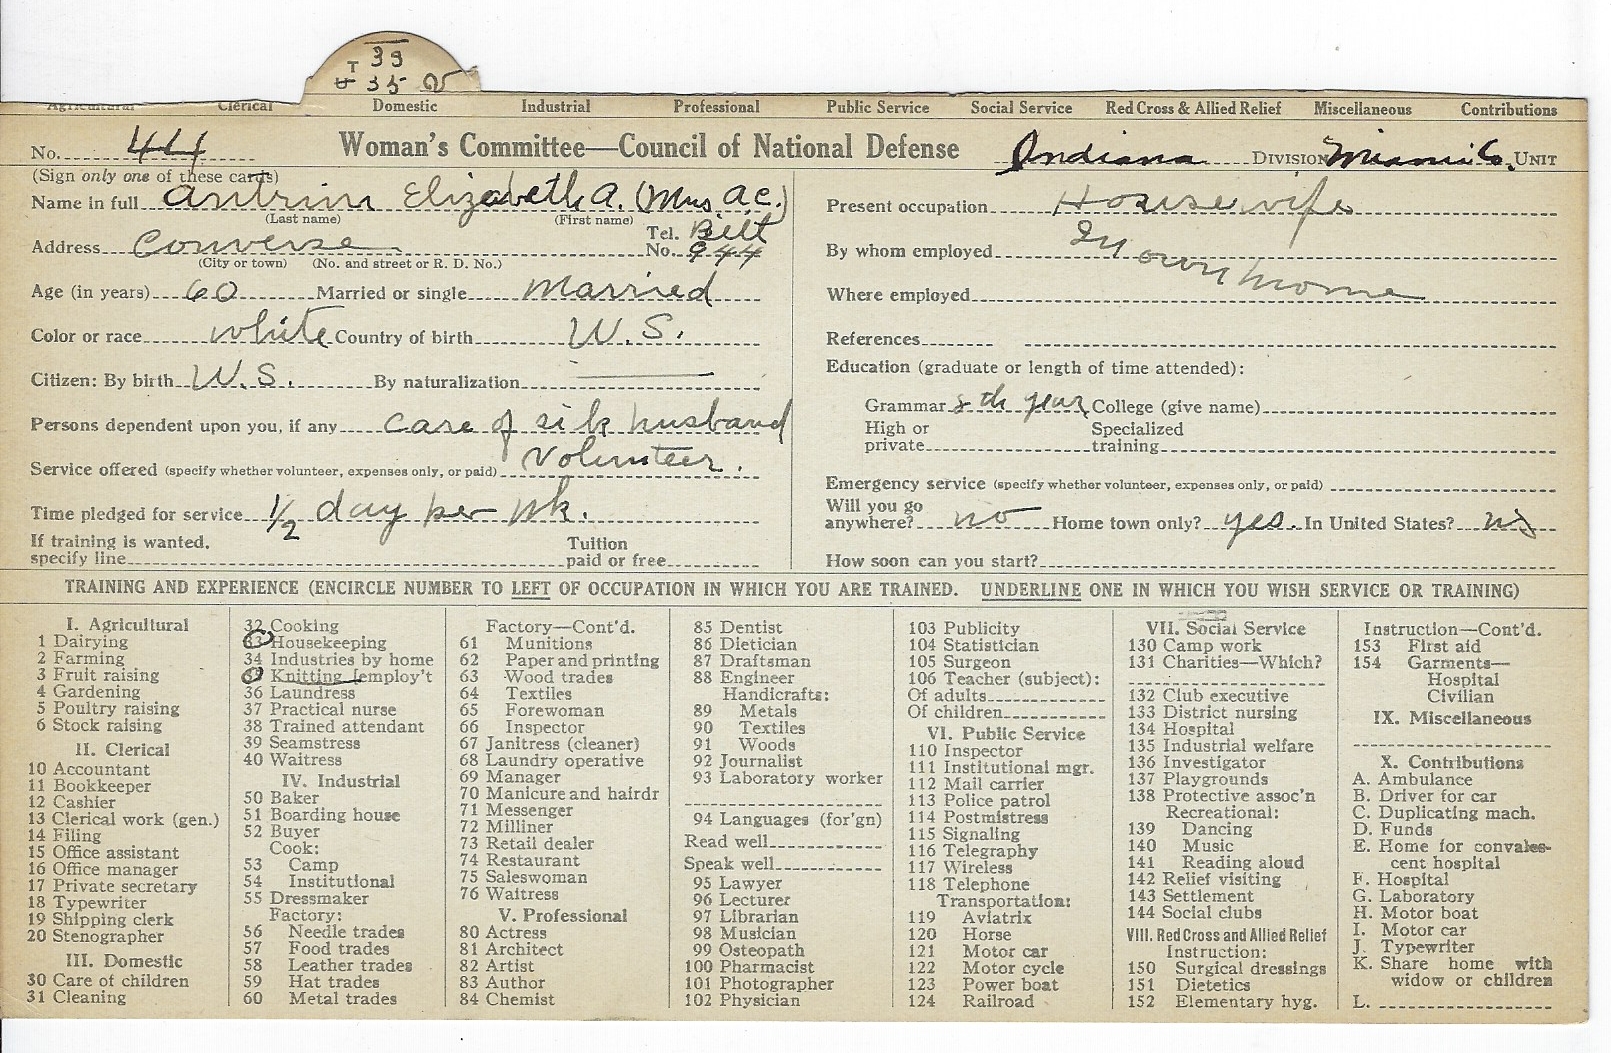 T 33
35 V
Agricultural Clerical Domestic Industrial Professional Public Service Social Service Red Cross & Allied Relief Miscellaneous Contributions
No. 444 Woman's Committee—Council of National Defense Indiana DIVISION Miami Co. UNIT
(Sign only one of these cards)
Name in full Antrim Elizabeth A. (Mrs A.C.)
(Last name) (First name)
Address Converse Tel. No. Bell 944
(City or town) (No. and street or R. D. No.)
Age (in years) 60 Married or single married
Color or race white Country of birth U.S.
Citizen: By birth U.S. By naturalization
Persons dependent upon you, if any care of sik husband
Service offered (specify whether volunteer, expenses only, or paid) Volunteer.
Time pledged for service 1/2 day per wk.
If training is wanted, specify line Tuition paid or free
Present occupation Housewife
By whom employed In own home
Where employed
References
Education (graduate or length of time attended):
Grammar 8th year College (give name)
High or private Specialized training
Emergency service (specify whether volunteer, expenses only, or paid)
Will you go anywhere? no Home town only? yes. In United States? no
How soon can you start?
TRAINING AND EXPERIENCE (ENCIRCLE NUMBER TO LEFT OF OCCUPATION IN WHICH YOU ARE TRAINED. UNDERLINE ONE IN WHICH YOU WISH SERVICE OR TRAINING)
I. Agricultural
1 Dairying
2 Farming
3 Fruit raising
4 Gardening
5 Poultry raising
6 Stock raising
II. Clerical
10 Accountant
11 Bookkeeper
12 Cashier
13 Clerical work (gen.)
14 Filing
15 Office assistant
16 Office manager
17 Private secretary
18 Typewriter
19 Shipping clerk
20 Stenographer
III. Domestic
30 Care of children
31 Cleaning
32 Cooking
33 Housekeeping
34 Industries by home
35 Knitting [employ't
36 Laundress
37 Practical nurse
38 Trained attendant
39 Seamstress
40 Waitress
IV. Industrial
50 Baker
51 Boarding house
52 Buyer
Cook:
53 Camp
54 Institutional
55 Dressmaker
Factory:
56 Needle trades
57 Food trades
58 Leather trades
59 Hat trades
60 Metal trades
Factory—Cont'd.
61 Munitions
62 Paper and printing
63 Wood trades
64 Textiles
65 Forewoman
66 Inspector
67 Janitress (cleaner)
68 Laundry operative
69 Manager
70 Manicure and hairdr
71 Messenger
72 Milliner
73 Retail dealer
74 Restaurant
75 Saleswoman
76 Waitress
V. Professional
80 Actress
81 Architect
82 Artist
83 Author
84 Chemist
85 Dentist
86 Dietician
87 Draftsman
88 Engineer
Handicrafts:
89 Metals
90 Textiles
91 Woods
92 Journalist
93 Laboratory worker
94 Languages (for'gn)
Read well
Speak well
95 Lawyer
96 Lecturer
97 Librarian
98 Musician
99 Osteopath
100 Pharmacist
101 Photographer
102 Physician
103 Publicity
104 Statistician
105 Surgeon
106 Teacher (subject):
Of adults
Of children
VI. Public Service
110 Inspector
111 Institutional mgr.
112 Mail carrier
113 Police patrol
114 Postmistress
115 Signaling
116 Telegraphy
117 Wireless
118 Telephone
Transportation:
119 Aviatrix
120 Horse
121 Motor car
122 Motor cycle
123 Power boat
124 Railroad
VII. Social Service
130 Camp work
131 Charities—Which?
132 Club executive
133 District nursing
134 Hospital
135 Industrial welfare
136 Investigator
137 Playgrounds
138 Protective assoc'n
Recreational:
139 Dancing
140 Music
141 Reading aloud
142 Relief visiting
143 Settlement
144 Social clubs
VIII. Red Cross and Allied Relief
Instruction:
150 Surgical dressings
151 Dietetics
152 Elementary hyg.
Instruction—Cont'd.
153 First aid
154 Garments—
Hospital
Civilian
IX. Miscellaneous
X. Contributions
A. Ambulance
B. Driver for car
C. Duplicating mach.
D. Funds
E. Home for convales-
cent hospital
F. Hospital
G. Laboratory
H. Motor boat
I. Motor car
J. Typewriter
K. Share home with
widow or children
L.